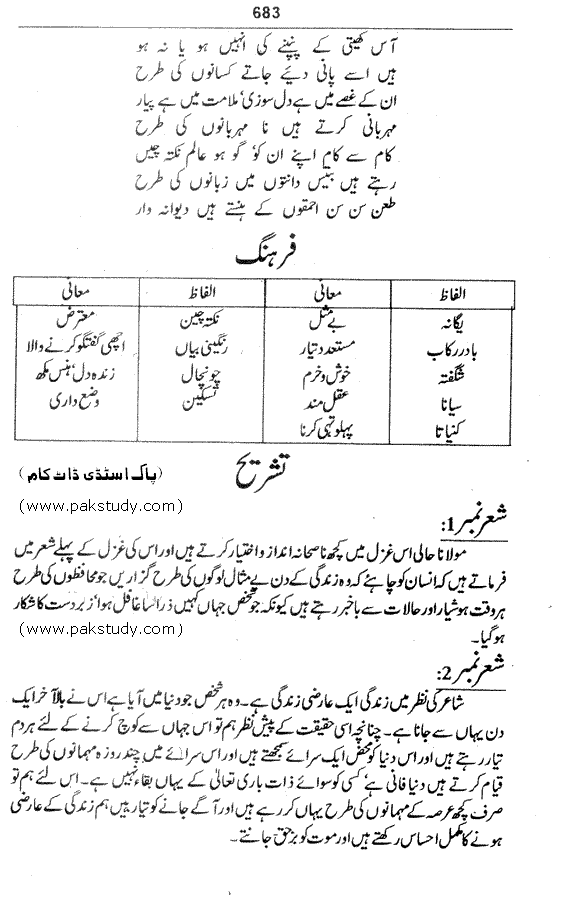 683
آس کھیتی کے پنپنے کی انہیں ہو یا نہ ہو
ہیں اسے پانی دیئے جاتے کسانوں کی طرح
ان کے غصے میں ہے دل سوزی' ملامت میں ہے پیار
مہربانی کرتے ہیں نا مہربانوں کی طرح
کام سے کام اپنے ان کو' گو ہو عالم نکتہ چیں
رہتے ہیں بتیس دانتوں میں زبانوں کی طرح
طعن سن سن احمقوں کے ہنستے ہیں دیوانہ وار
فرہنگ
الفاظ معانی الفاظ معانی
یگانہ بے مثل نکتہ چین معترض
بادر رکاب مستعد و تیار رنگینی بیاں اچھی گفتگو کرنے والا
شگفتہ خوش و خرم چونچال زندہ دل' ہنس مکھ
سیانا عقل مند تسکین وضع داری
کنیاتا پہلو تہی کرنا
تشریح
(پاک اسٹڈی ڈاٹ کام)
(www.pakstudy.com)
شعر نمبر 1:
مولانا حالی اس غزل میں کچھ ناصحانہ انداز و اختیار کرتے ہیں اور اس کی غزل کے پہلے شعر میں
فرماتے ہیں کہ انسان کو چاہئے کہ وہ زندگی کے دن بے مثال لوگوں کی طرح گزاریں جو محافظوں کی طرح
ہر وقت ہوشیار اور حالات سے باخبر رہتے ہیں کیونکہ جو شخص جہاں کہیں ذرا سا غافل ہوا' زبردست کا شکار
ہو گیا۔
(www.pakstudy.com)
شعر نمبر 2:
شاعر کی نظر میں زندگی ایک عارضی زندگی ہے۔ وہ ہر شخص جو دنیا میں آیا ہے اس نے بالآخر ایک
دن یہاں سے جانا ہے۔ چنانچہ اسی حقیقت کے پیش نظر ہم تو اس جہاں سے کوچ کرنے کے لئے ہر دم
تیار رہتے ہیں اور اس دنیا کو محض ایک سرائے سمجھتے ہیں اور اس سرائے میں چند روزہ مہمانوں کی طرح
قیام کرتے ہیں دنیا فانی ہے' کسی کو سوائے ذات باری تعالیٰ کے یہاں بقاء نہیں ہے۔ اس لئے ہم تو
صرف کچھ عرصہ کے مہمانوں کی طرح یہاں کر رہے ہیں اور آگے جانے کو تیار ہیں ہم زندگی کے عارضی
ہونے کا مکمل احساس رکھتے ہیں اور موت کو برحق جانتے۔